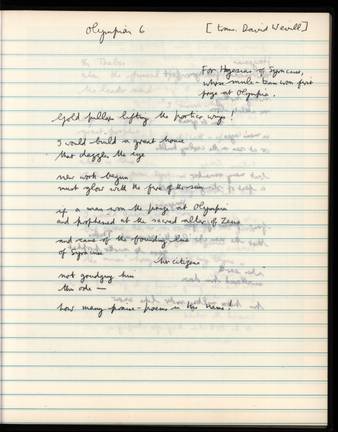 Olympian 6 [trans. David Wevill]
For Hagesias of Syracuse,
whose mule-team won first
prize at Olympia.
Gold pillars lifting the portico ways!
I would build a great house
that dazzles the eye
new work begun
must glow with the fire of the sun
if a man won the prize at Olympia
and prophesied at the sacred altar of Zeus
and came of the founding line
of Syracuse
his citizens
not grudging him
this ode —
how many praise-poems in this theme!